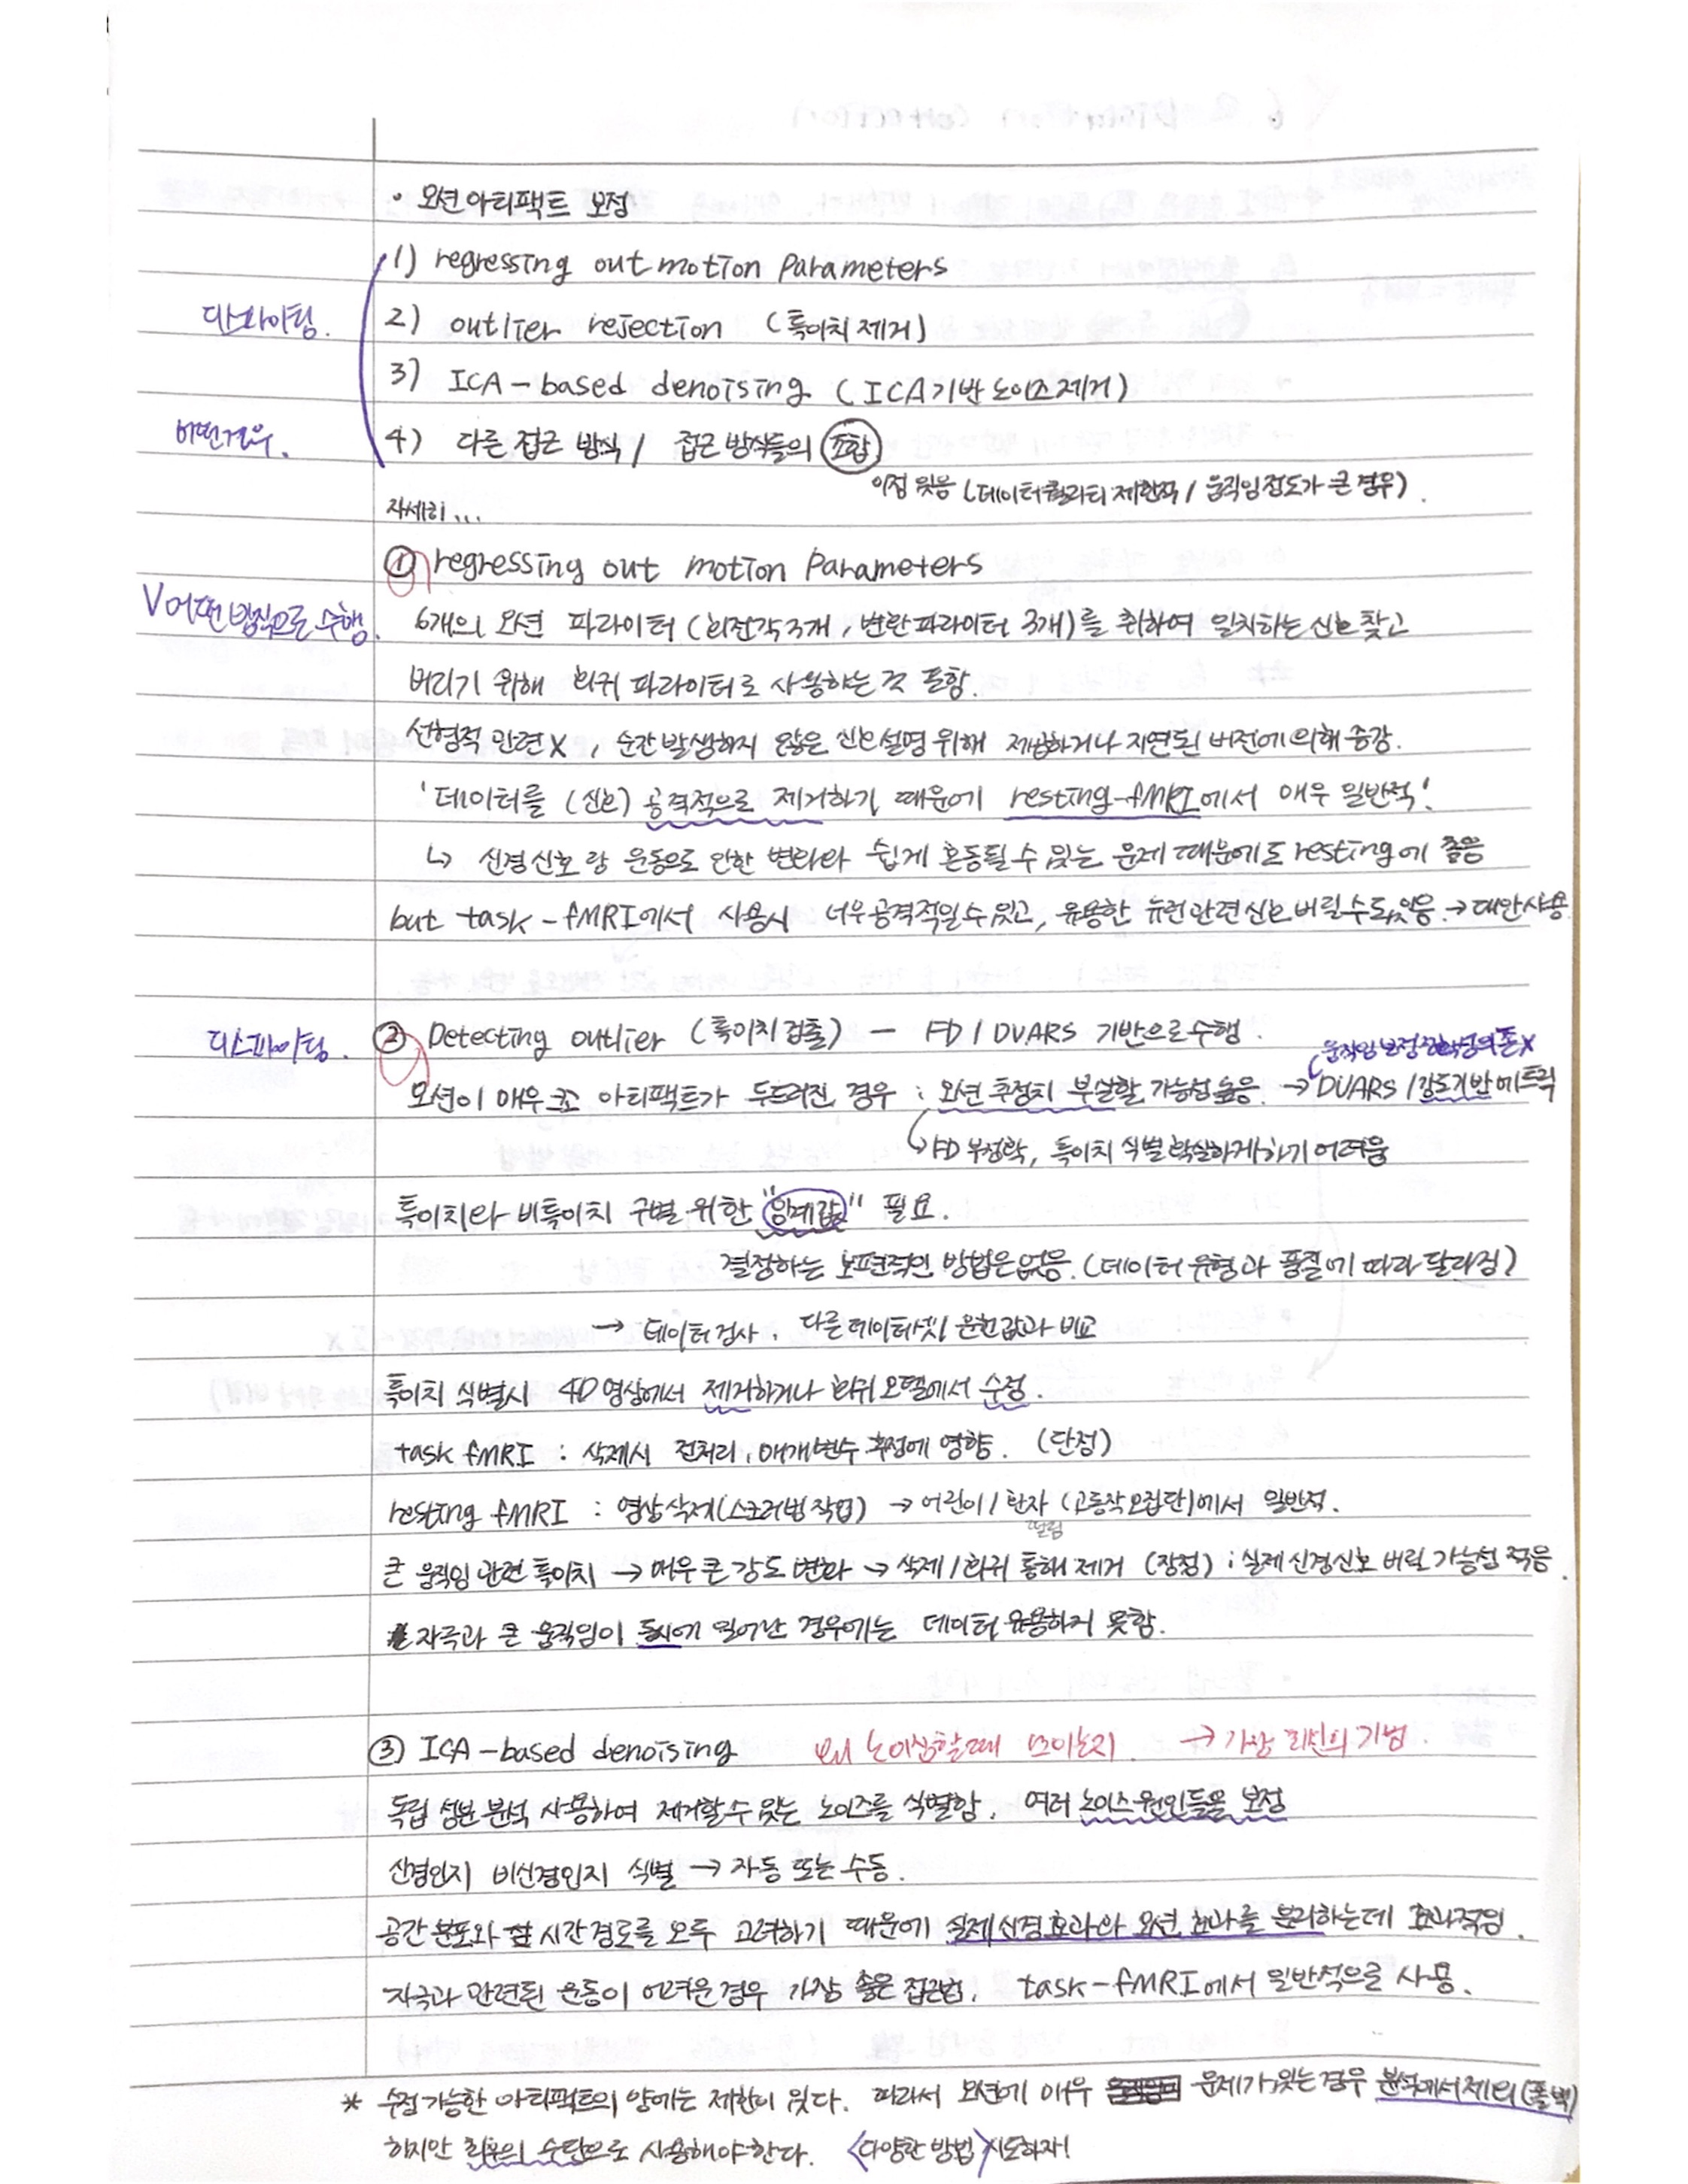 · 모션 아티팩트 보정
1) regressing out motion parameters
디스파이킹.
2) outlier rejection (특이치 제거)
3) ICA-based denoising (ICA기반 노이즈제거)
어떤경우.
4) 다른 접근 방식 / 접근 방식들의 조합
이점 있음 (데이터퀄리티 제한적 / 움직임정도가 큰 경우).
자세히...
① regressing out motion Parameters
V 어떤 방식으로 수행.
6개의 모션 파라미터 (회전각 3개, 변환파라미터 3개)를 취하여 일치하는 신호 찾고
버리기 위해 회귀 파라미터로 사용하는 것 포함.
선형적 관련 x, 순간 발생하지 않은 신호 설명 위해 제곱하거나 지연된 버전에 의해 증강.
'데이터를 (신호) 공격적으로 제거하기 때문에 resting-fMRI에서 매우 일반적'
↳ 신경신호랑 운동으로 인한 변화와 쉽게 혼동될 수 있는 문제 때문에도 resting에 좋음
but task-fMRI에서 사용시 너무 공격적일 수 있고, 유용한 뉴런관련신호 버릴 수도 있음. → 대안사용
디스파이킹.
② Detecting outlier (특이치 검출) - FD / DVARS 기반으로 수행.
움직임 보정 정확성 의존 X
모션이 매우 크고 아티팩트가 두드러진 경우 : 모션 추정치 부실할 가능성 높음. → DVARS / 강도기반 메트릭
↳ FD 부정확, 특이치 식별 확실하게 하기 어려움
특이치와 비특이치 구별 위한 "임계값" 필요.
결정하는 보편적인 방법은 없음. (데이터 유형과 품질에 따라 달라짐)
→ 데이터 검사, 다른 데이터셋 / 문헌 값과 비교
특이치 식별시 4D 영상에서 제거하거나 회귀 모델에서 수정.
task fMRI : 삭제시 전처리, 매개변수 추정에 영향. (단점)
resting fMRI : 영상 삭제 (스크러빙 작업) → 어린이 / 환자 (고동작모집단)에서 일반적.
큰 움직임 관련 특이치 → 매우 큰 강도 변화 → 삭제 / 회귀 통해 제거 (장점) : 실제 신경신호 버릴 가능성 적음.
자극과 큰 움직임이 동시에 일어난 경우에는 데이터 유용하지 못함.
③ ICA-based denoising → 가장 최선의 기법.
독립 성분 분석 사용하여 제거할 수 있는 노이즈를 식별함. 여러 노이즈 원인들을 보정
신경인지 비신경인지 식별 → 자동 또는 수동.
공간 분포와 시간 경로를 모두 고려하기 때문에 실제 신경효과와 모션 효과를 분리하는데 효과적임.
자극과 관련된 운동이 어려운 경우 가장 좋은 접근법. task-fMRI에서 일반적으로 사용.
* 수정 가능한 아티팩트의 양에는 제한이 있다. 따라서 모션에 매우 문제가 있는 경우 분석에서 제외 (폴백)
하지만 최후의 수단으로 사용해야 한다. <다양한 방법> 시도하자!